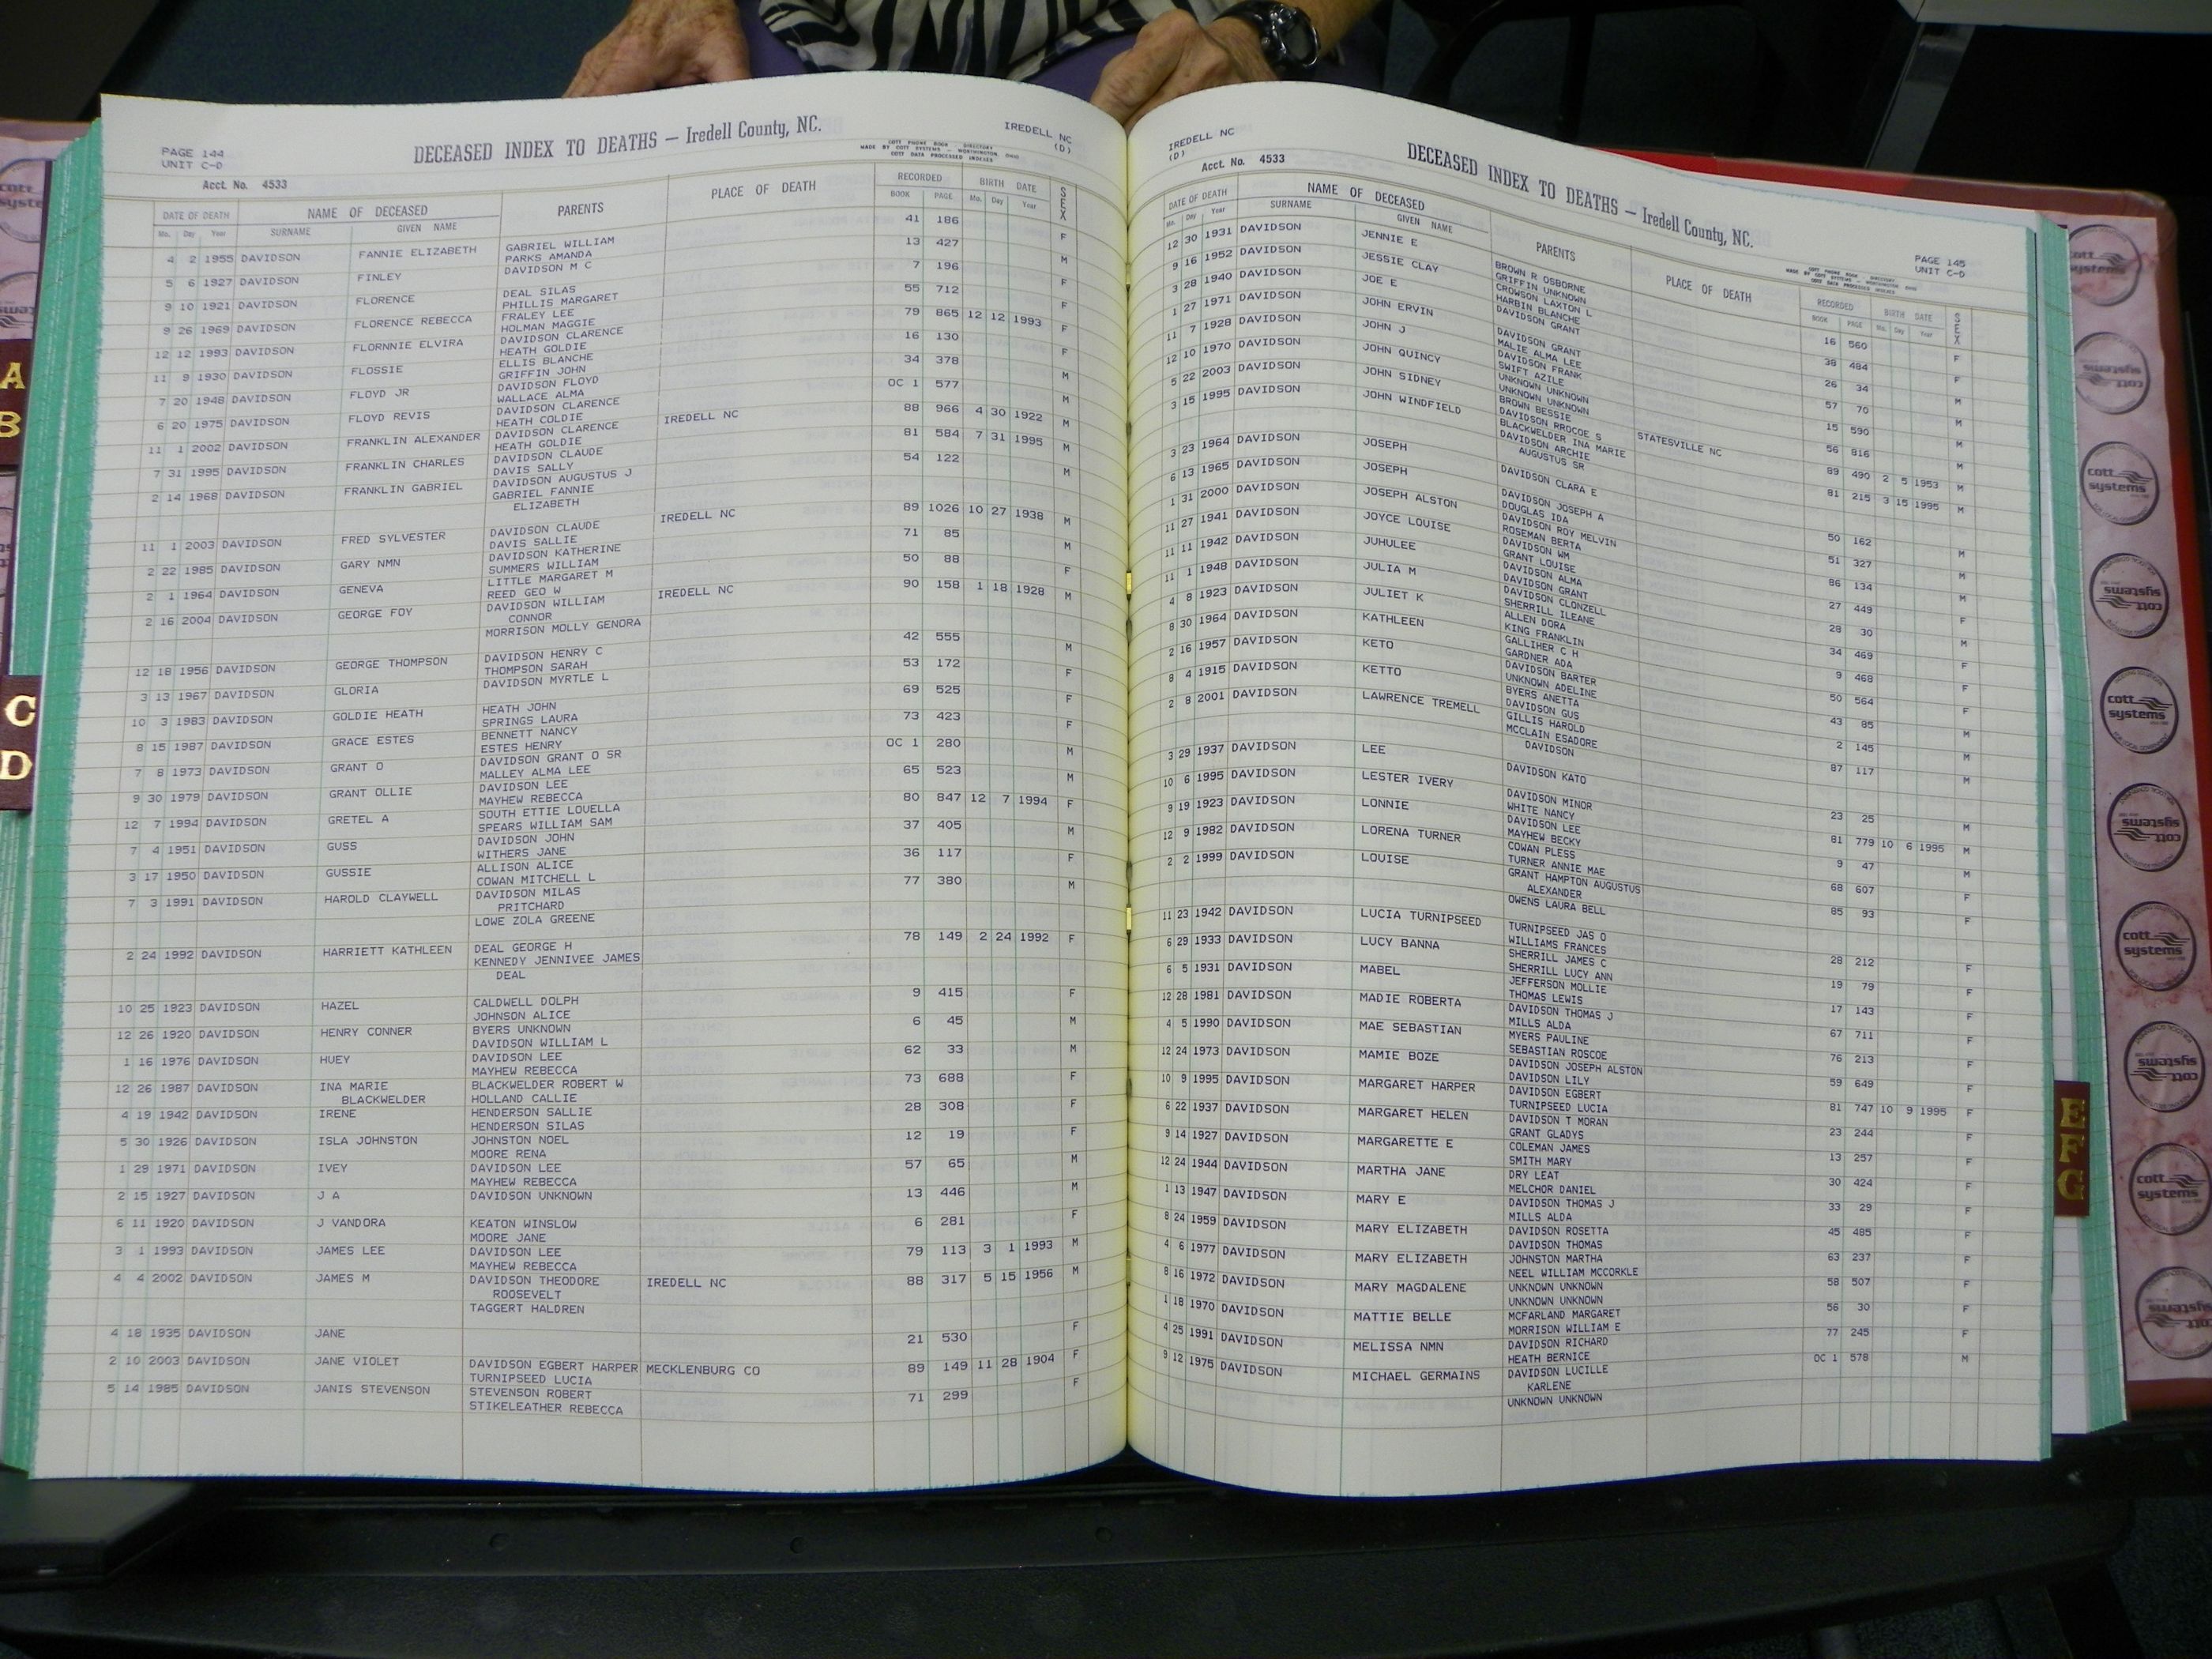 PAGE 144
UNIT C-D
DECEASED INDEX TO DEATHS — Iredell County, NC.
IREDELL NC
(D)
COTT PHONE BOOK - DIRECTORY
MADE BY COTT SYSTEMS - WORTHINGTON, OHIO
COTT DATA PROCESSED INDEXES
Acct. No. 4533
DATE OF DEATH NAME OF DECEASED PARENTS PLACE OF DEATH RECORDED BIRTH DATE SEX
Mo. Day Year SURNAME GIVEN NAME BOOK PAGE Mo. Day Year
4 2 1955 DAVIDSON FANNIE ELIZABETH GABRIEL WILLIAM 41 186 F
PARKS AMANDA
5 6 1927 DAVIDSON FINLEY DAVIDSON M C 13 427 M
9 10 1921 DAVIDSON FLORENCE DEAL SILAS 7 196 F
PHILLIS MARGARET
9 26 1969 DAVIDSON FLORENCE REBECCA FRALEY LEE 55 712 F
HOLMAN MAGGIE
12 12 1993 DAVIDSON FLORNNIE ELVIRA DAVIDSON CLARENCE 79 865 12 12 1993 F
HEATH GOLDIE
11 9 1930 DAVIDSON FLOSSIE ELLIS BLANCHE 16 130 F
GRIFFIN JOHN
7 20 1948 DAVIDSON FLOYD JR DAVIDSON FLOYD 34 378 M
WALLACE ALMA
6 20 1975 DAVIDSON FLOYD REVIS DAVIDSON CLARENCE OC 1 577 M
HEATH COLDIE
11 1 2002 DAVIDSON FRANKLIN ALEXANDER DAVIDSON CLARENCE IREDELL NC 88 966 4 30 1922 M
HEATH GOLDIE
7 31 1995 DAVIDSON FRANKLIN CHARLES DAVIDSON CLAUDE 81 584 7 31 1995 M
DAVIS SALLY
2 14 1968 DAVIDSON FRANKLIN GABRIEL DAVIDSON AUGUSTUS J 54 122 M
GABRIEL FANNIE
ELIZABETH
11 1 2003 DAVIDSON FRED SYLVESTER DAVIDSON CLAUDE IREDELL NC 89 1026 10 27 1938 M
DAVIS SALLIE
2 22 1985 DAVIDSON GARY NMN DAVIDSON KATHERINE 71 85 M
SUMMERS WILLIAM
2 1 1964 DAVIDSON GENEVA LITTLE MARGARET M 50 88 F
REED GEO W
2 16 2004 DAVIDSON GEORGE FOY DAVIDSON WILLIAM IREDELL NC 90 158 1 18 1928 M
CONNOR
MORRISON MOLLY GENORA
12 18 1956 DAVIDSON GEORGE THOMPSON DAVIDSON HENRY C 42 555 M
THOMPSON SARAH
3 13 1967 DAVIDSON GLORIA DAVIDSON MYRTLE L 53 172 F
10 3 1983 DAVIDSON GOLDIE HEATH HEATH JOHN 69 525 F
SPRINGS LAURA
8 15 1987 DAVIDSON GRACE ESTES BENNETT NANCY 73 423 F
ESTES HENRY
7 8 1973 DAVIDSON GRANT O DAVIDSON GRANT O SR OC 1 280 M
MALLEY ALMA LEE
9 30 1979 DAVIDSON GRANT OLLIE DAVIDSON LEE 65 523 M
MAYHEW REBECCA
12 7 1994 DAVIDSON GRETEL A SOUTH ETTIE LOUELLA 80 847 12 7 1994 F
SPEARS WILLIAM SAM
7 4 1951 DAVIDSON GUSS DAVIDSON JOHN 37 405 M
WITHERS JANE
3 17 1950 DAVIDSON GUSSIE ALLISON ALICE 36 117 F
COWAN MITCHELL L
7 3 1991 DAVIDSON HAROLD CLAYWELL DAVIDSON MILAS 77 380 M
PRITCHARD
LOWE ZOLA GREENE
2 24 1992 DAVIDSON HARRIETT KATHLEEN DEAL GEORGE H 78 149 2 24 1992 F
KENNEDY JENNIVEE JAMES
DEAL
10 25 1923 DAVIDSON HAZEL CALDWELL DOLPH 9 415 F
JOHNSON ALICE
12 26 1920 DAVIDSON HENRY CONNER BYERS UNKNOWN 6 45 M
DAVIDSON WILLIAM L
1 16 1976 DAVIDSON HUEY DAVIDSON LEE 62 33 M
MAYHEW REBECCA
12 26 1987 DAVIDSON INA MARIE BLACKWELDER ROBERT W 73 688 F
BLACKWELDER HOLLAND CALLIE
4 19 1942 DAVIDSON IRENE HENDERSON SALLIE 28 308 F
HENDERSON SILAS
5 30 1926 DAVIDSON ISLA JOHNSTON JOHNSTON NOEL 12 19 F
MOORE RENA
1 29 1971 DAVIDSON IVEY DAVIDSON LEE 57 65 M
MAYHEW REBECCA
2 15 1927 DAVIDSON J A DAVIDSON UNKNOWN 13 446 M
6 11 1920 DAVIDSON J VANDORA KEATON WINSLOW 6 281 F
MOORE JANE
3 1 1993 DAVIDSON JAMES LEE DAVIDSON LEE 79 113 3 1 1993 M
MAYHEW REBECCA
4 4 2002 DAVIDSON JAMES M DAVIDSON THEODORE IREDELL NC 88 317 5 15 1956 M
ROOSEVELT
TAGGERT HALDREN
4 18 1935 DAVIDSON JANE 21 530 F
2 10 2003 DAVIDSON JANE VIOLET DAVIDSON EGBERT HARPER MECKLENBURG CO 89 149 11 28 1904 F
TURNIPSEED LUCIA
5 14 1985 DAVIDSON JANIS STEVENSON STEVENSON ROBERT 71 299 F
STIKELEATHER REBECCA
IREDELL NC
(D)
DECEASED INDEX TO DEATHS — Iredell County, NC.
PAGE 145
UNIT C-D
Acct. No. 4533
DATE OF DEATH NAME OF DECEASED PARENTS PLACE OF DEATH RECORDED BIRTH DATE SEX
Mo. Day Year SURNAME GIVEN NAME BOOK PAGE Mo. Day Year
12 30 1931 DAVIDSON JENNIE E BROWN R OSBORNE 16 560 F
GRIFFIN UNKNOWN
9 16 1952 DAVIDSON JESSIE CLAY CROWSON LAXTON L 38 484 F
HARBIN BLANCHE
3 28 1940 DAVIDSON JOE E DAVIDSON GRANT 26 34 M
1 27 1971 DAVIDSON JOHN ERVIN DAVIDSON GRANT 57 70 M
MALIE ALMA LEE
11 7 1928 DAVIDSON JOHN J DAVIDSON FRANK 15 590 M
SWIFT AZILE
12 10 1970 DAVIDSON JOHN QUINCY UNKNOWN UNKNOWN 56 816 M
UNKNOWN UNKNOWN
5 22 2003 DAVIDSON JOHN SIDNEY BROWN BESSIE STATESVILLE NC 89 490 2 5 1953 M
DAVIDSON RROCOE S
3 15 1995 DAVIDSON JOHN WINDFIELD BLACKWELDER INA MARIE 81 215 3 15 1995 M
DAVIDSON ARCHIE
AUGUSTUS SR
3 23 1964 DAVIDSON JOSEPH DAVIDSON CLARA E 50 162 M
6 13 1965 DAVIDSON JOSEPH DAVIDSON JOSEPH A 51 327 M
DOUGLAS IDA
1 31 2000 DAVIDSON JOSEPH ALSTON DAVIDSON ROY MELVIN 86 134 M
ROSEMAN BERTA
11 27 1941 DAVIDSON JOYCE LOUISE DAVIDSON WM 27 449 F
GRANT LOUISE
11 11 1942 DAVIDSON JUHULEE DAVIDSON ALMA 28 30 M
DAVIDSON GRANT
11 1 1948 DAVIDSON JULIA M DAVIDSON CLONZELL 34 469 F
SHERRILL ILEANE
4 8 1923 DAVIDSON JULIET K ALLEN DORA 9 468 F
KING FRANKLIN
8 30 1964 DAVIDSON KATHLEEN GALLIHER C H 50 564 F
GARDNER ADA
2 16 1957 DAVIDSON KETO DAVIDSON BARTER 43 85 M
UNKNOWN ADELINE
8 4 1915 DAVIDSON KETTO BYERS ANETTA 2 145 M
DAVIDSON GUS
2 8 2001 DAVIDSON LAWRENCE TREMELL GILLIS HAROLD 87 117 M
MCCLAIN ESADORE
DAVIDSON
3 29 1937 DAVIDSON LEE DAVIDSON KATO 23 25 M
10 6 1995 DAVIDSON LESTER IVERY DAVIDSON MINOR 81 779 10 6 1995 M
WHITE NANCY
9 19 1923 DAVIDSON LONNIE DAVIDSON LEE 9 47 M
MAYHEW BECKY
12 9 1982 DAVIDSON LORENA TURNER COWAN PLESS 68 607 F
TURNER ANNIE MAE
2 2 1999 DAVIDSON LOUISE GRANT HAMPTON AUGUSTUS 85 93 F
ALEXANDER
OWENS LAURA BELL
11 23 1942 DAVIDSON LUCIA TURNIPSEED TURNIPSEED JAS O 28 212 F
WILLIAMS FRANCES
6 29 1933 DAVIDSON LUCY BANNA SHERRILL JAMES C 19 79 F
SHERRILL LUCY ANN
6 5 1931 DAVIDSON MABEL JEFFERSON MOLLIE 17 143 F
THOMAS LEWIS
12 28 1981 DAVIDSON MADIE ROBERTA DAVIDSON THOMAS J 67 711 F
MILLS ALDA
4 5 1990 DAVIDSON MAE SEBASTIAN MYERS PAULINE 76 213 F
SEBASTIAN ROSCOE
12 24 1973 DAVIDSON MAMIE BOZE DAVIDSON JOSEPH ALSTON 59 649 F
DAVIDSON LILY
10 9 1995 DAVIDSON MARGARET HARPER DAVIDSON EGBERT 81 747 10 9 1995 F
TURNIPSEED LUCIA
6 22 1937 DAVIDSON MARGARET HELEN DAVIDSON T MORAN 23 244 F
GRANT GLADYS
9 14 1927 DAVIDSON MARGARETTE E COLEMAN JAMES 13 257 F
SMITH MARY
12 24 1944 DAVIDSON MARTHA JANE DRY LEAT 30 424 F
MELCHOR DANIEL
1 13 1947 DAVIDSON MARY E DAVIDSON THOMAS J 33 29 F
MILLS ALDA
8 24 1959 DAVIDSON MARY ELIZABETH DAVIDSON ROSETTA 45 485 F
DAVIDSON THOMAS
4 6 1977 DAVIDSON MARY ELIZABETH JOHNSTON MARTHA 63 237 F
NEEL WILLIAM MCCORKLE
8 16 1972 DAVIDSON MARY MAGDALENE UNKNOWN UNKNOWN 58 507 F
UNKNOWN UNKNOWN
1 18 1970 DAVIDSON MATTIE BELLE MCFARLAND MARGARET 56 30 F
MORRISON WILLIAM E
4 25 1991 DAVIDSON MELISSA NMN DAVIDSON RICHARD 77 245 F
HEATH BERNICE
9 12 1975 DAVIDSON MICHAEL GERMAINS DAVIDSON LUCILLE OC 1 578 M
KARLENE
UNKNOWN UNKNOWN
A
B
C
D
E
F
G
cott systems